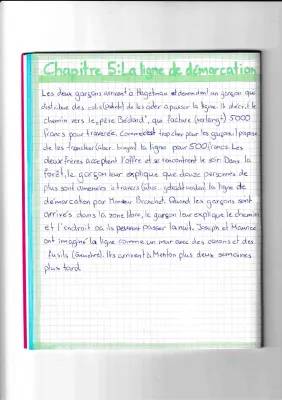 Chapitre 5: La ligne de démarcation
Les deux garçons arrivent à Hagetmau et demandent un garçon qui
distribue des colis de les aider a passer la ligne. Il décrit le
chemin vers le „père Bédard", qui facture (verlangt) 5000
francs pour traversée. Comme c'est trop cher pour les garçons il propose
de les (über. bringen) la ligne pour 500 francs. Les
deux frères acceptent l'offre et se rencontrent le soir. Dans la
forêt, le garçon leur explique que douze personnes de
plus sont à travers la ligne de
démarcation par Monsieur. Quand les garçons sont
arrivés dans la zone libre, le garçon leur explique le chemin
et l'endroit où ils peuvent passer la nuit. Joseph et Maurice
ont imaginé la ligne comme un mur avec des canons et des
fusils (Gewehre). Ils arrivent à Menton plus deux semaines
plus tard.